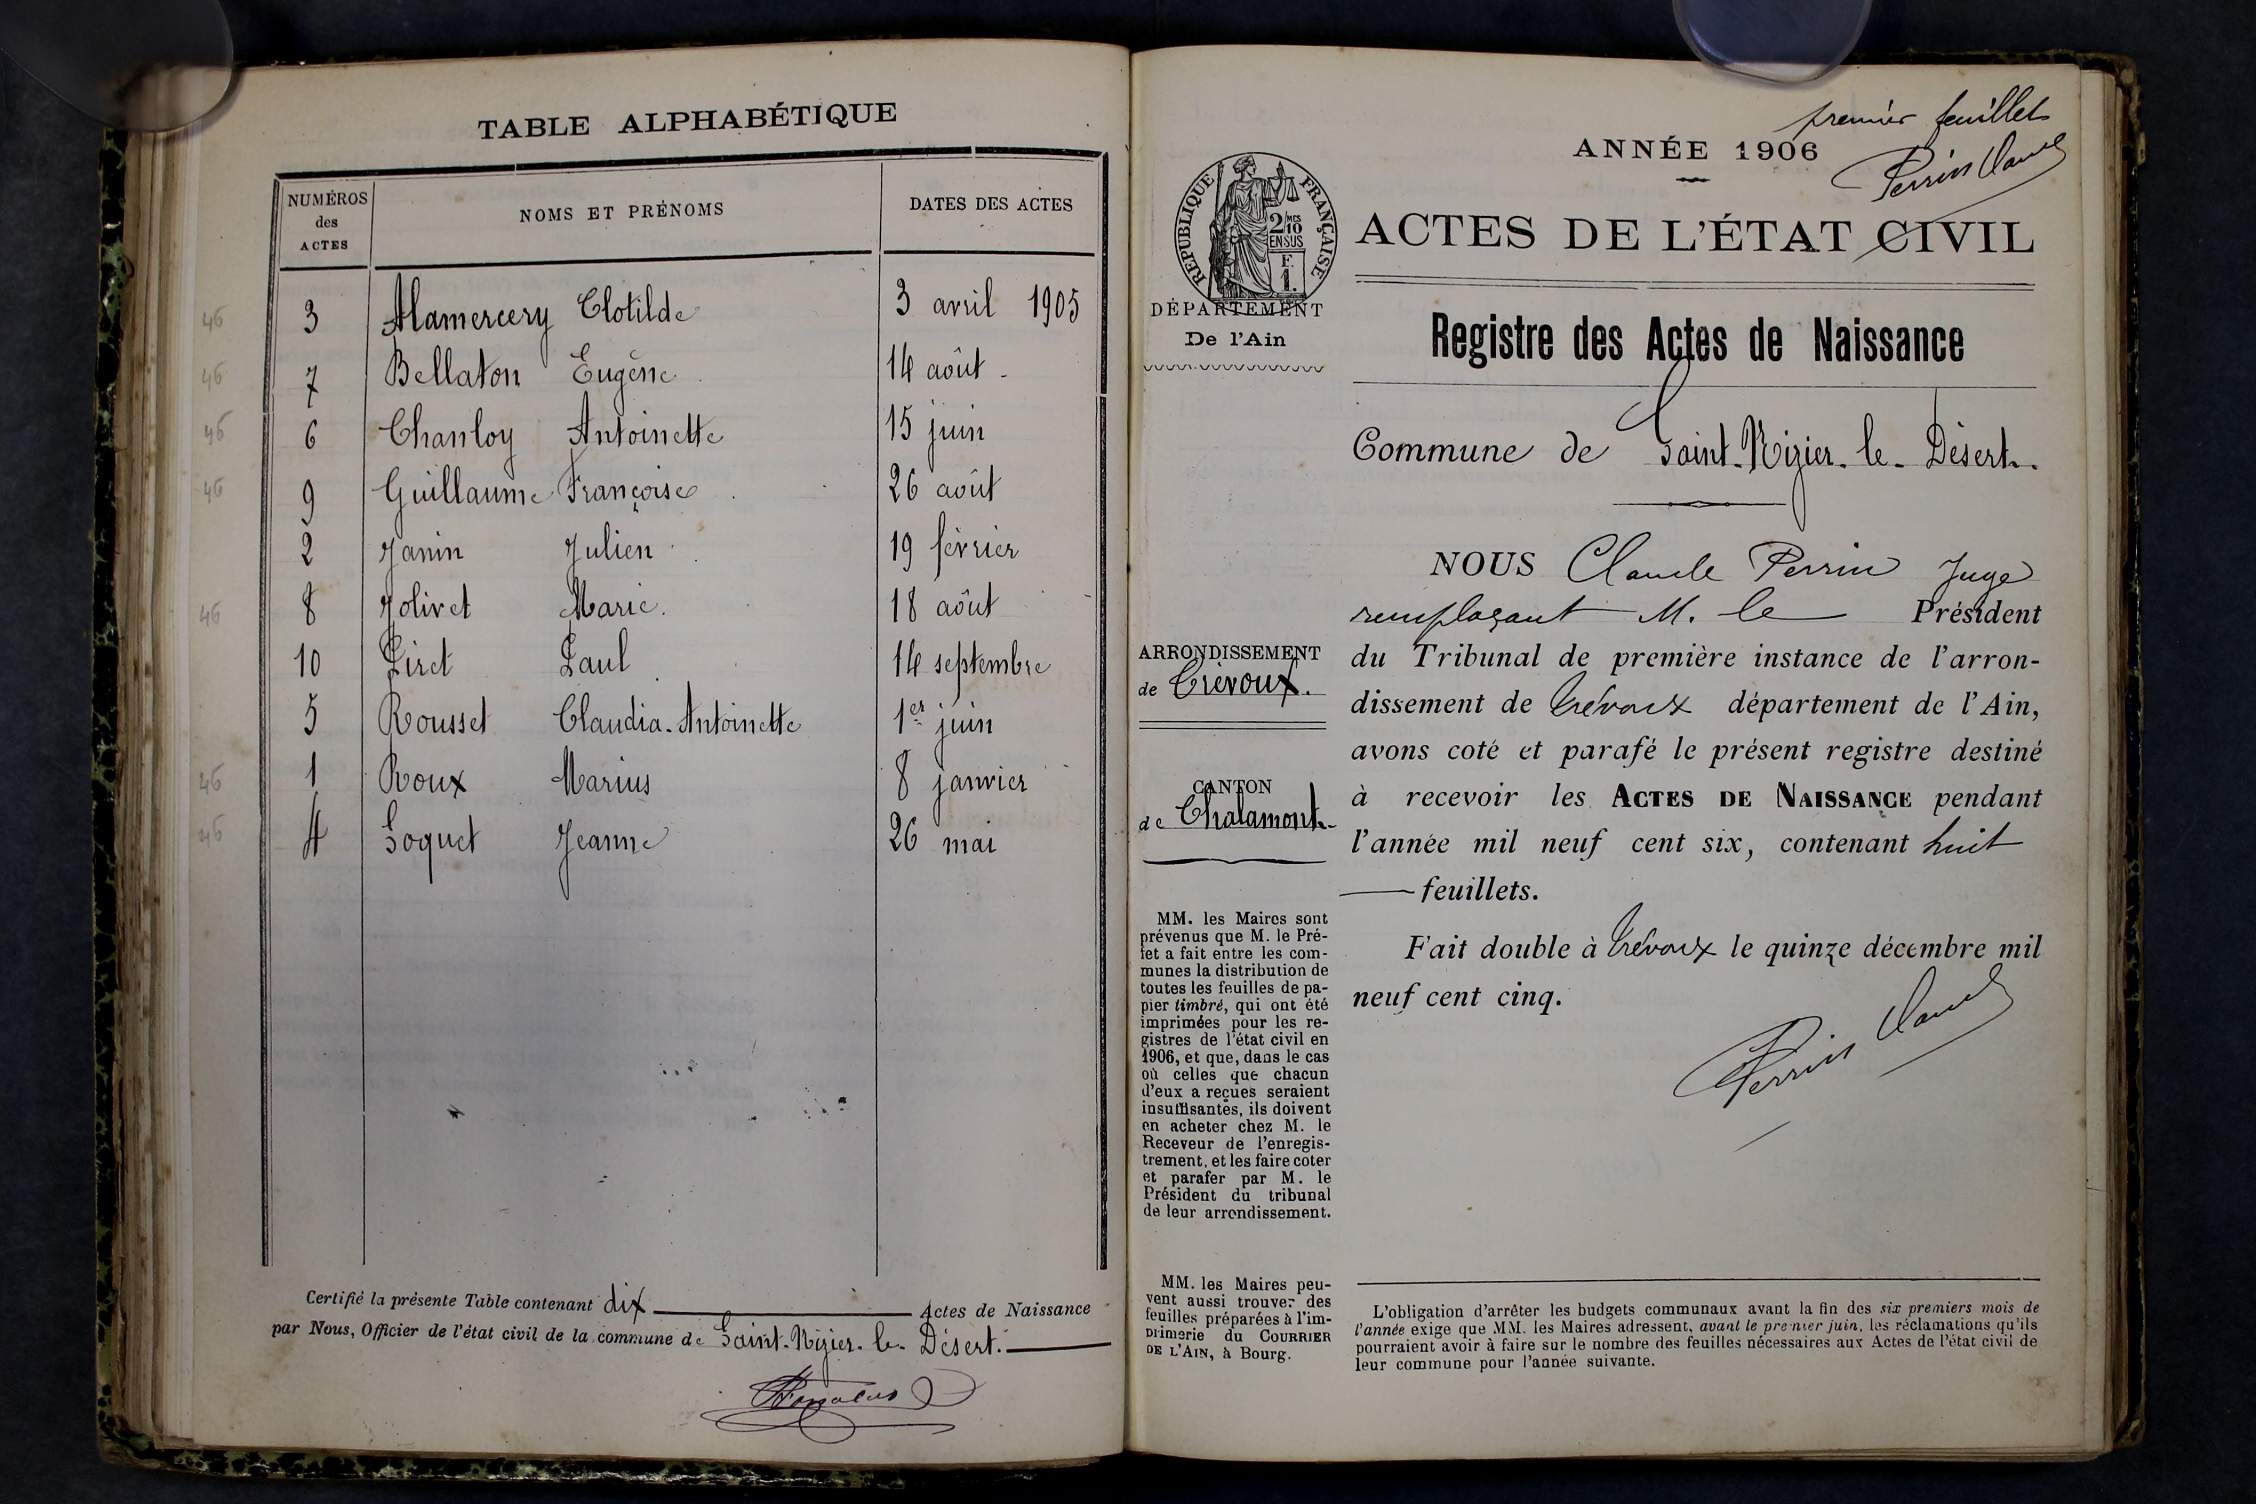 TABLE ALPHABÉTIQUE
NUMÉROS des ACTES
NOMS ET PRÉNOMS
DATES DES ACTES
46 3 Alamercery Clotilde 3 avril 1905
46 7 Bellaton Eugène 14 août -
46 6 Chanloy Antoinette 15 juin
46 9 Guillaume Françoise 26 août
2 Janin Julien 19 février
46 8 Jolivet Marie 18 août
10 Piret Paul 14 septembre
5 Rousset Claudia-Antoinette 1er juin
46 1 Roux Marius 8 janvier
46 4 Soquet Jeanne 26 mai
Certifié la présente Table contenant dix Actes de Naissance
par Nous, Officier de l'état civil de la commune de Saint-Nizier-le-Désert.
premier feuillet
Perrin Claude
ANNÉE 1906
RÉPUBLIQUE FRANÇAISE
2/10 MES
EN SUS
F.
1.
ACTES DE L'ÉTAT CIVIL
DÉPARTEMENT
De l'Ain
Registre des Actes de Naissance
Commune de Saint-Nizier-le-Désert.
NOUS Claude Perrin Juge
remplaçant M. le Président
du Tribunal de première instance de l'arron-
dissement de Trévoux département de l'Ain,
avons coté et parafé le présent registre destiné
à recevoir les ACTES DE NAISSANCE pendant
l'année mil neuf cent six, contenant huit
feuillets.
Fait double à Trévoux le quinze décembre mil
neuf cent cinq.
Perrin Claude
ARRONDISSEMENT
de Trévoux.
CANTON
de Chalamont.
MM. les Maires sont
prévenus que M. le Pré-
fet a fait entre les com-
munes la distribution de
toutes les feuilles de pa-
pier timbré, qui ont été
imprimées pour les re-
gistres de l'état civil en
1906, et que, dans le cas
où celles que chacun
d'eux a reçues seraient
insuffisantes, ils doivent
en acheter chez M. le
Receveur de l'enregis-
trement, et les faire coter
et parafer par M. le
Président du tribunal
de leur arrondissement.
MM. les Maires peu-
vent aussi trouver des
feuilles préparées à l'im-
primerie du COURRIER
DE L'AIN, à Bourg.
L'obligation d'arrêter les budgets communaux avant la fin des six premiers mois de
l'année exige que MM. les Maires adressent, avant le premier juin, les réclamations qu'ils
pourraient avoir à faire sur le nombre des feuilles nécessaires aux Actes de l'état civil de
leur commune pour l'année suivante.